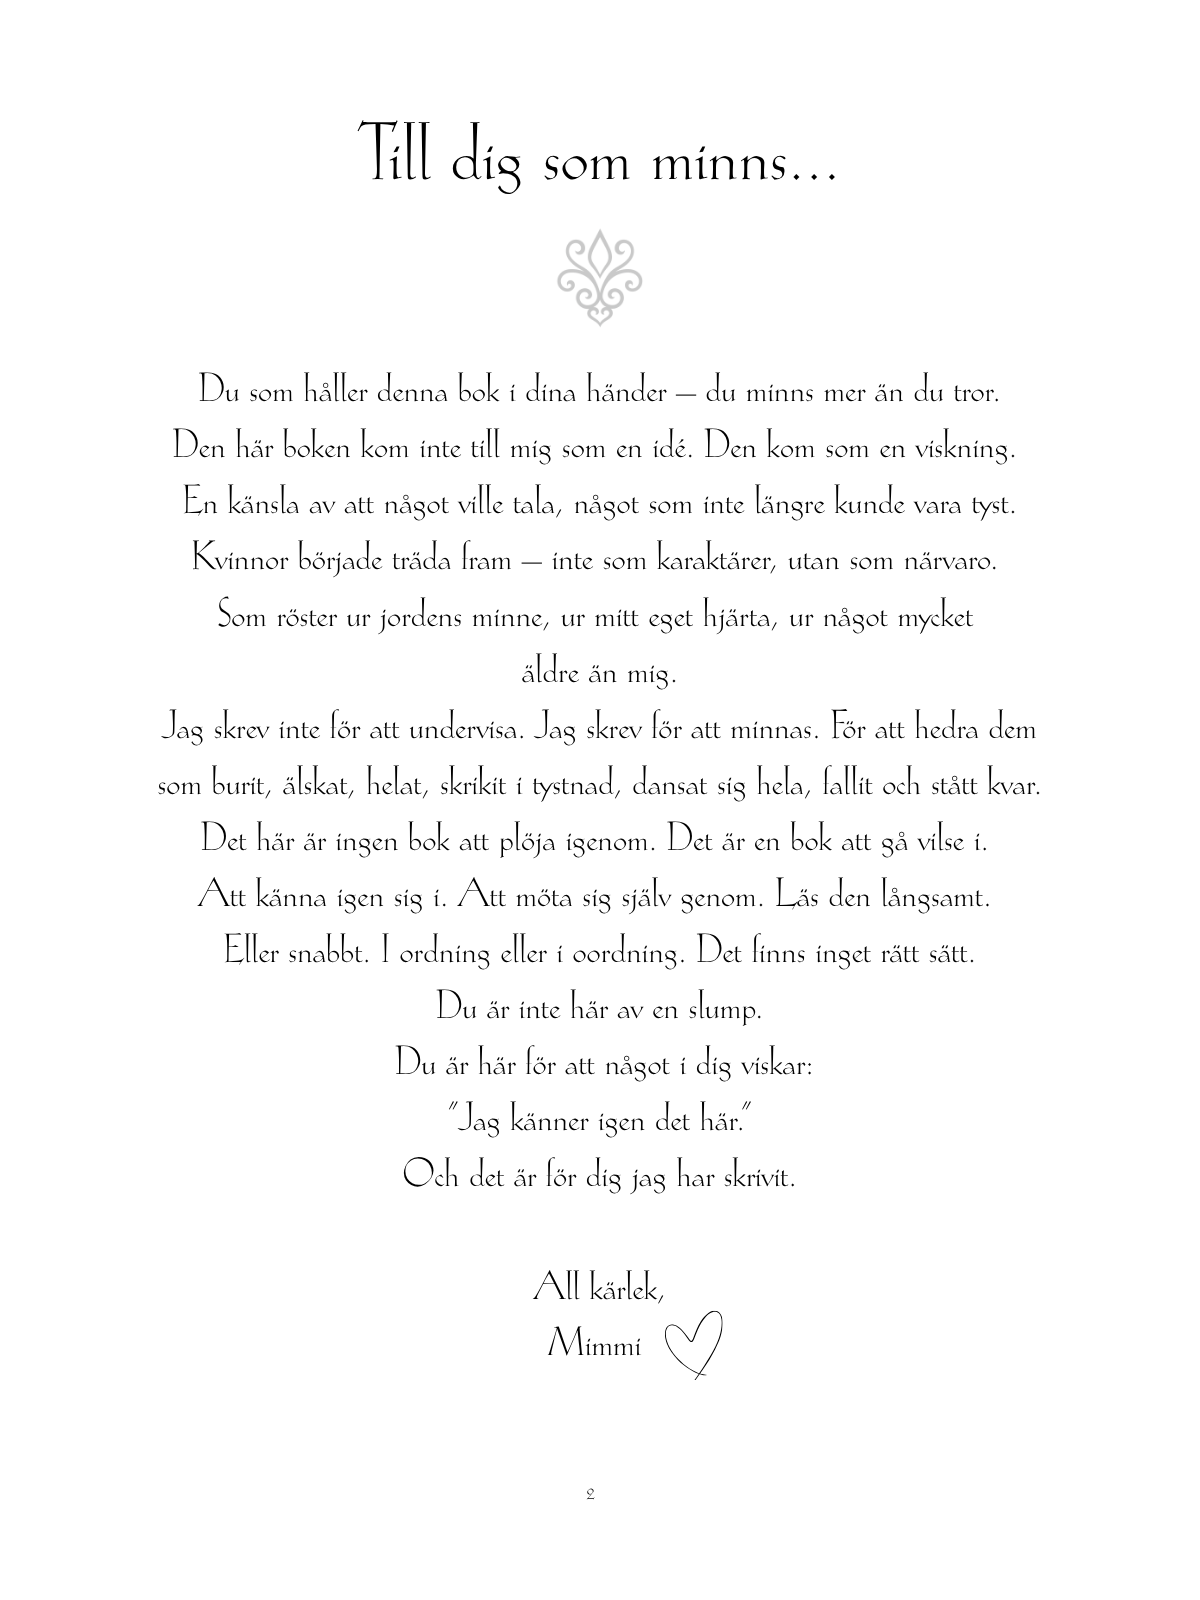 Till dig som minns...
Du som håller denna bok i dina händer – du minns mer än du tror.
Den här boken kom inte till mig som en idé. Den kom som en viskning.
En känsla av att något ville tala, något som inte längre kunde vara tyst.
Kvinnor började träda fram – inte som karaktärer, utan som närvaro.
Som röster ur jordens minne, ur mitt eget hjärta, ur något mycket
äldre än mig.
Jag skrev inte för att undervisa. Jag skrev för att minnas. För att hedra dem
som burit, älskat, helat, skrikit i tystnad, dansat sig hela, fallit och stått kvar.
Det här är ingen bok att plöja igenom. Det är en bok att gå vilse i.
Att känna igen sig i. Att möta sig själv genom. Läs den långsamt.
Eller snabbt. I ordning eller i oordning. Det finns inget rätt sätt.
Du är inte här av en slump.
Du är här för att något i dig viskar:
"Jag känner igen det här."
Och det är för dig jag har skrivit.
All kärlek,
Mimmi
2